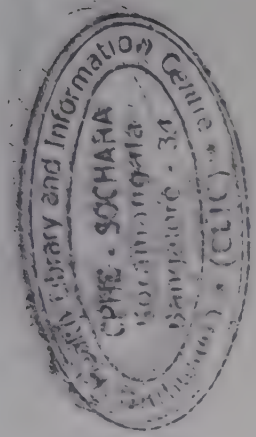 Library and Information Centre
(CLIC)
CPHE - SOCHARA
Koramangala
Bangalore - 34